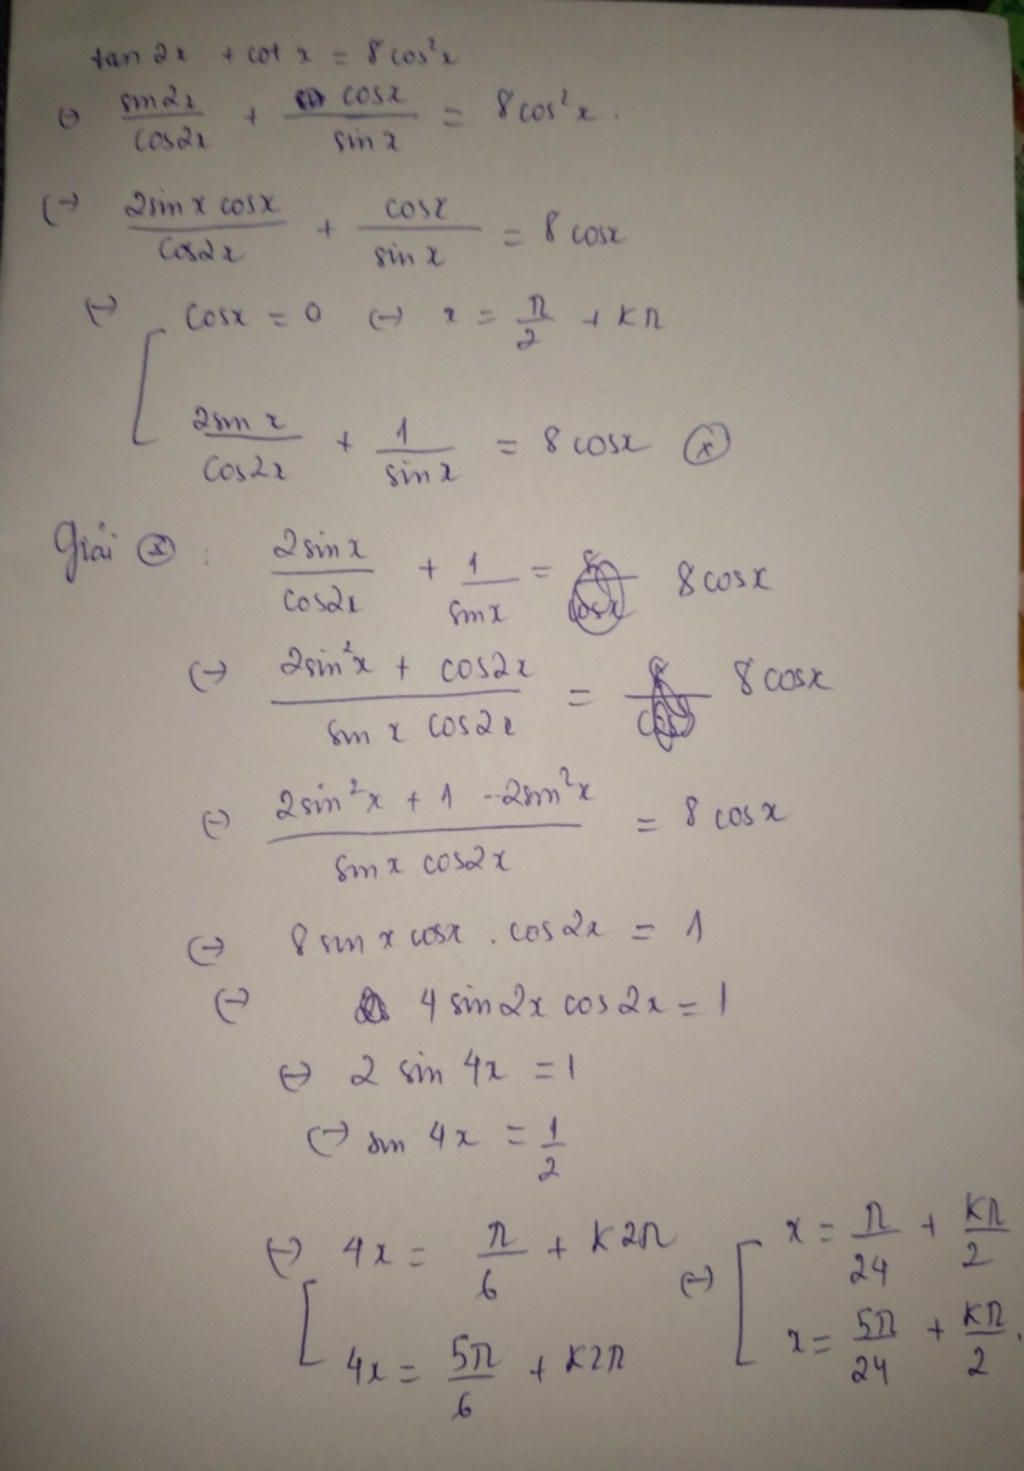 tan 2x + cot x = 8 cos²x
(-) sin2x/cos2x + cosx/sin x = 8 cos²x.
(-) 2sin x cosx/cos2x + cosx/sin x = 8 cosx
(-) [ cosx = 0 (-) x = π/2 + kπ
2sin x/cos2x + 1/sin x = 8 cosx (*)
Giải (*) : 2sin x/cos2x + 1/sin x = 8 cosx
(-) 2sin²x + cos2x/sin x cos2x = 8 cosx
(-) 2sin²x + 1 - 2sin²x/sin x cos2x = 8 cosx
(-) 8 sin x cosx . cos2x = 1
(-) 4 sin2x cos2x = 1
(-) 2 sin 4x = 1
(-) sin 4x = 1/2
(-) [ 4x = π/6 + k2π (-) [ x = π/24 + kπ/2
4x = 5π/6 + k2π x = 5π/24 + kπ/2.